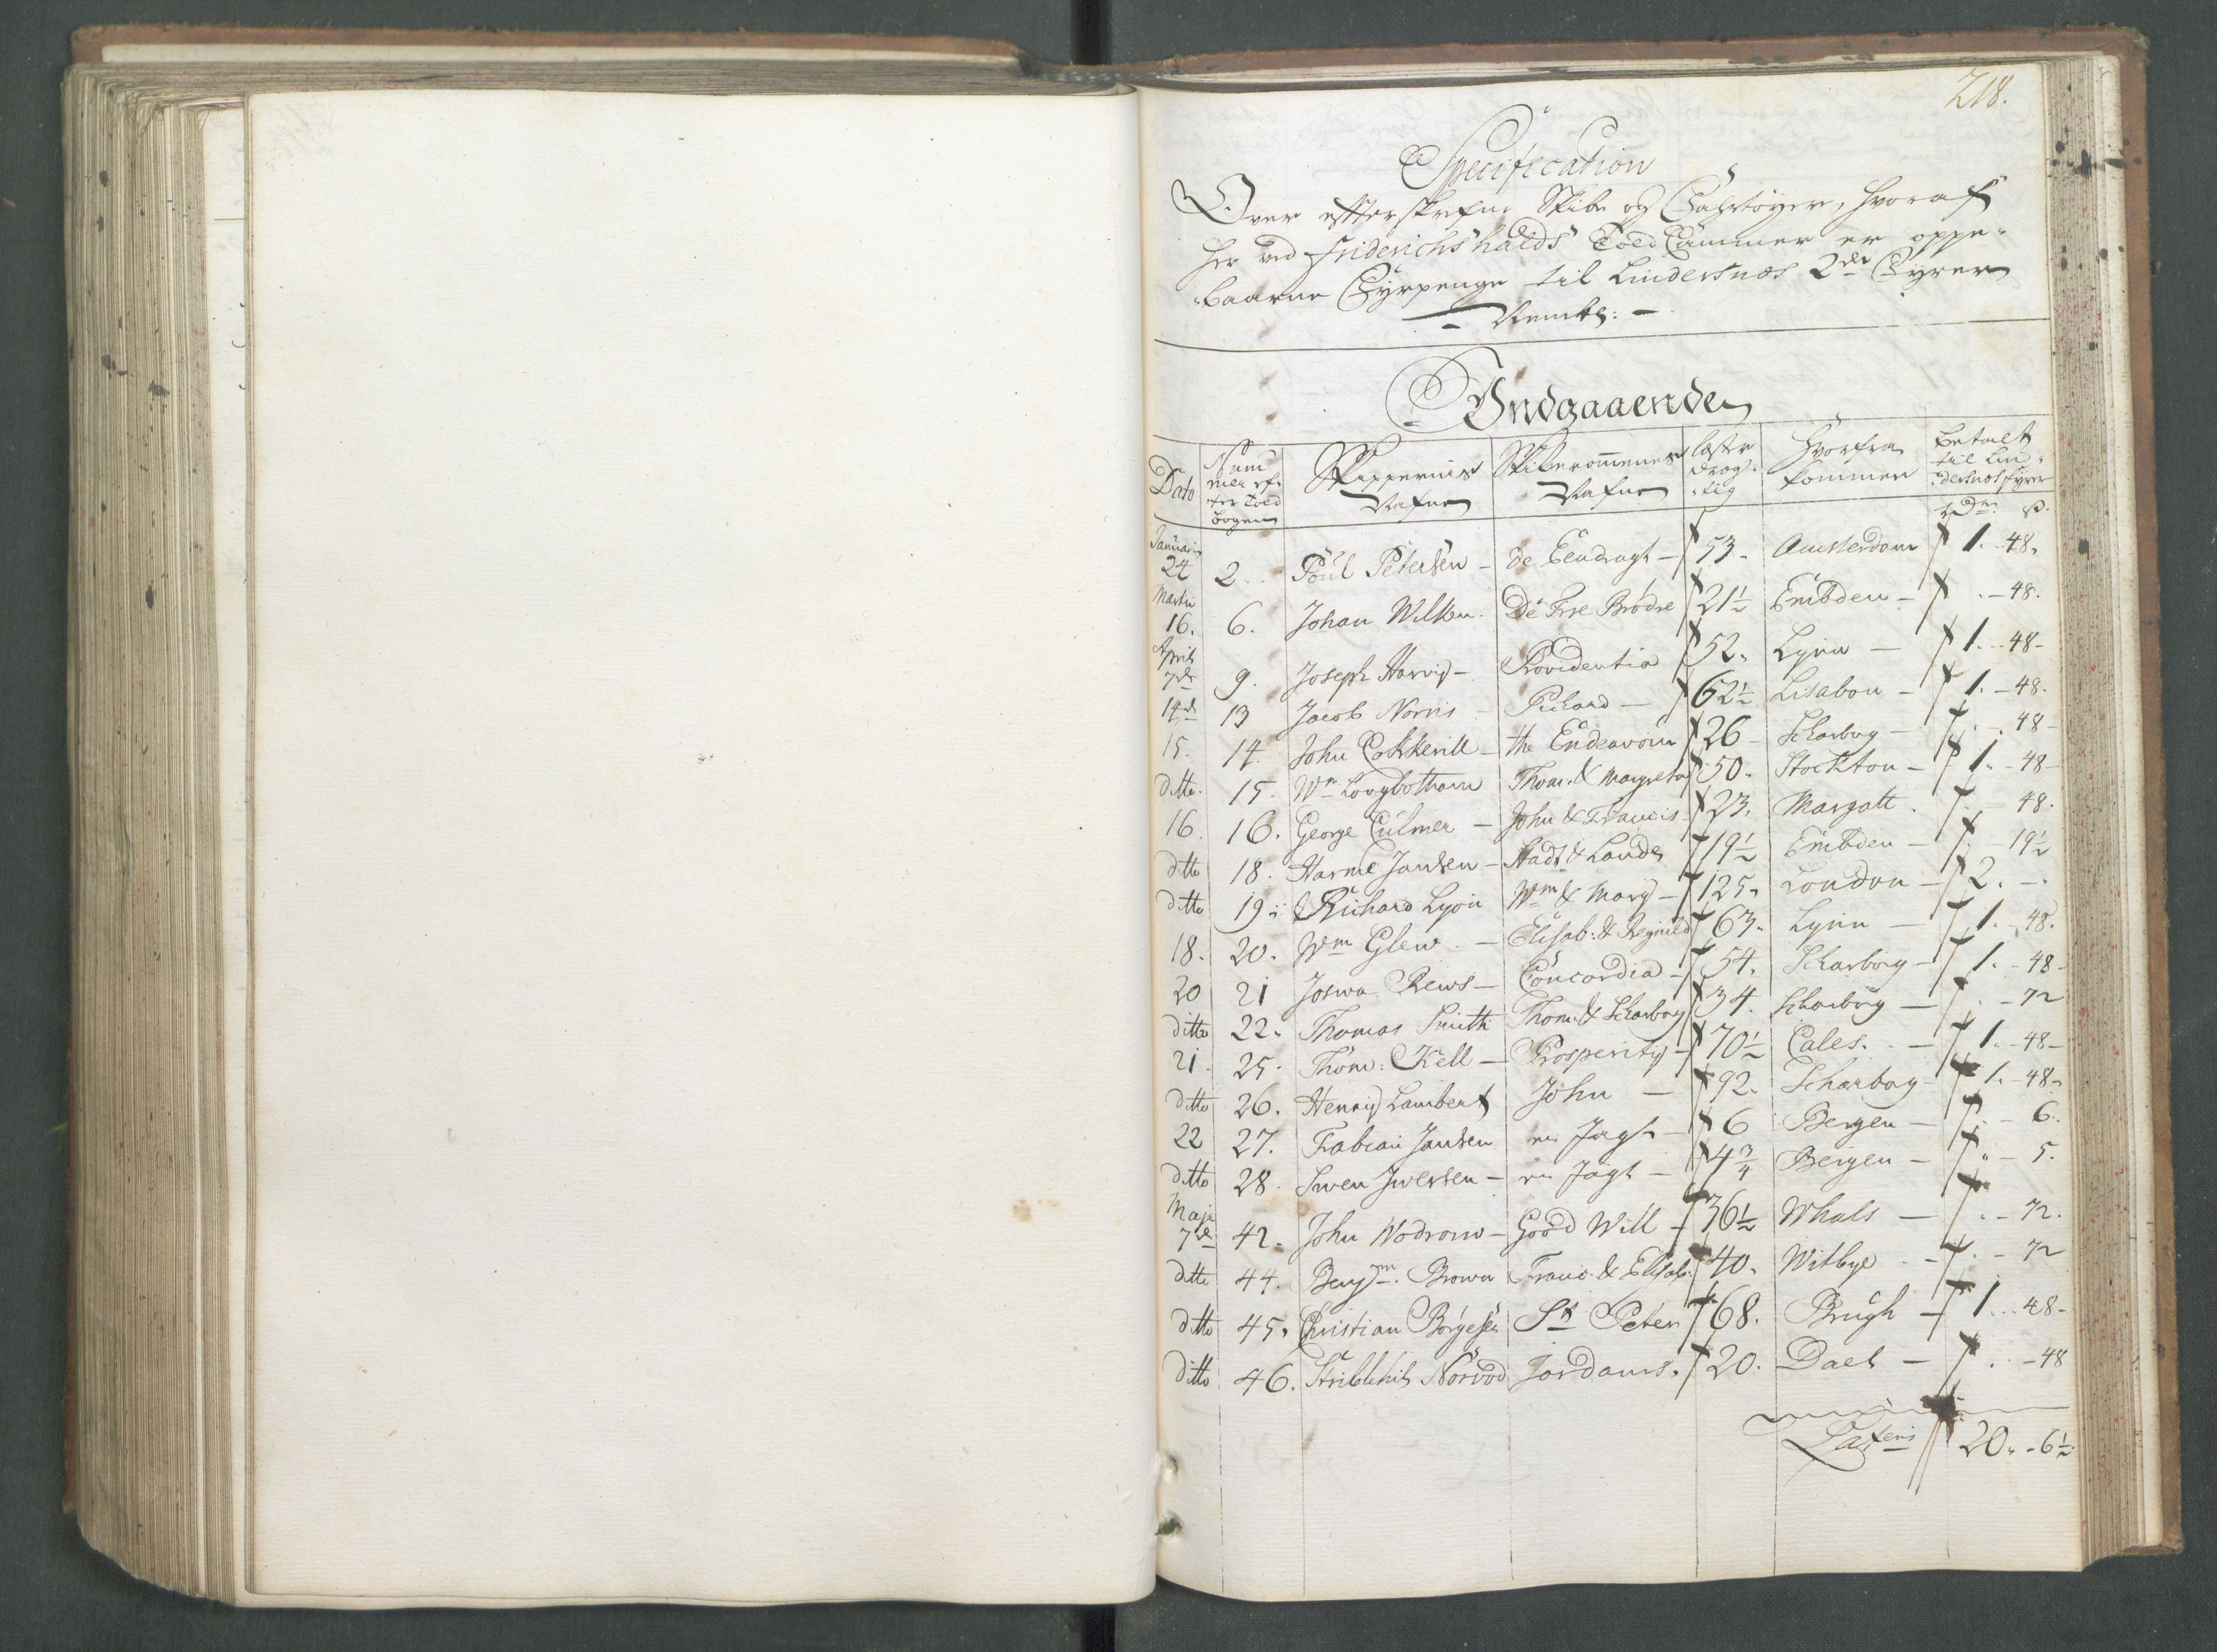 218.
Specification
Over efterskrefne Skibe og Fahrtøyer, hvoraf
her ved Friderichshalds Told Cammer er oppe-
baarne Fyrpenge til Lindersnæs 2de Fyrer
Nembl:
Indgaaende
Dato | Num mer ef- ter Told bogen | Skippernis Nafne | Skiberommenes Nafne | læster dræg- tig | Hvorfra kommer | betalt til Lin- dersnæs fyrer
rdr. s.
Januari
24 2. Poul Petersen - de Eendragt - 53. Amsterdam 1. 48.
Martii
16. 6. Johan Wilken. De Tre Brødre 21½ Embden - . - 48.
April
7de 9. Joseph Harvij - Providentia 52. Lynn - 1. - 48 -
14de 13 Jacob Norris - Pichard - 62½ Lisabon - 1. - 48.
15. 14. John Cokkerill - the Endeavour 26 - Scharborg - . . 48 -
ditto. 15. Wm Longbotham Thom. & Margreta 50. Stockton - 1. - 48 -
16. 16. George Culmer - John & Francis 23. Margatt . . - 48.
ditto 18. Harme Jansen - Stadt & Landes 19½ Embden - . - 19½
ditto 19. Richard Lyon Wm & Mary - 125. London - 2. - .
18. 20. Wm Glew. - Elisab: & Regnild 63. Lynn - 1. 48.
20 21 Joswa Rews - Concordia - 54. Scharborg - 1. - 48 -
ditto 22. Thomas Smith Thom. & Scharborg 34. Scharborg - . - 72
21. 25. Thom: Kell - Prosperity - 70½ Cales. - 1. - 48 -
ditto 26. Henrij Lambert John - 92. Scharborg - 1. - 48 -
22 27. Fabian Jansen en Jagt - 6 Bergen - . - 6.
ditto 28. Swen Iwersen - en Jagt - 4¾ Bergen - . - 5.
Maji
7de 42. John Wodrow - Good Will - 36½ Whals - . - 72.
ditto 44. Benjm. Brown Franc. & Elisab: 40. Witbye - . - 72
ditto 45. Christian Børgesen St Peter 68. Brugh - 1. . . 48 -
ditto 46. Norvod Jordams. 20. Dael - . - 48
Lateris 20. - 6½